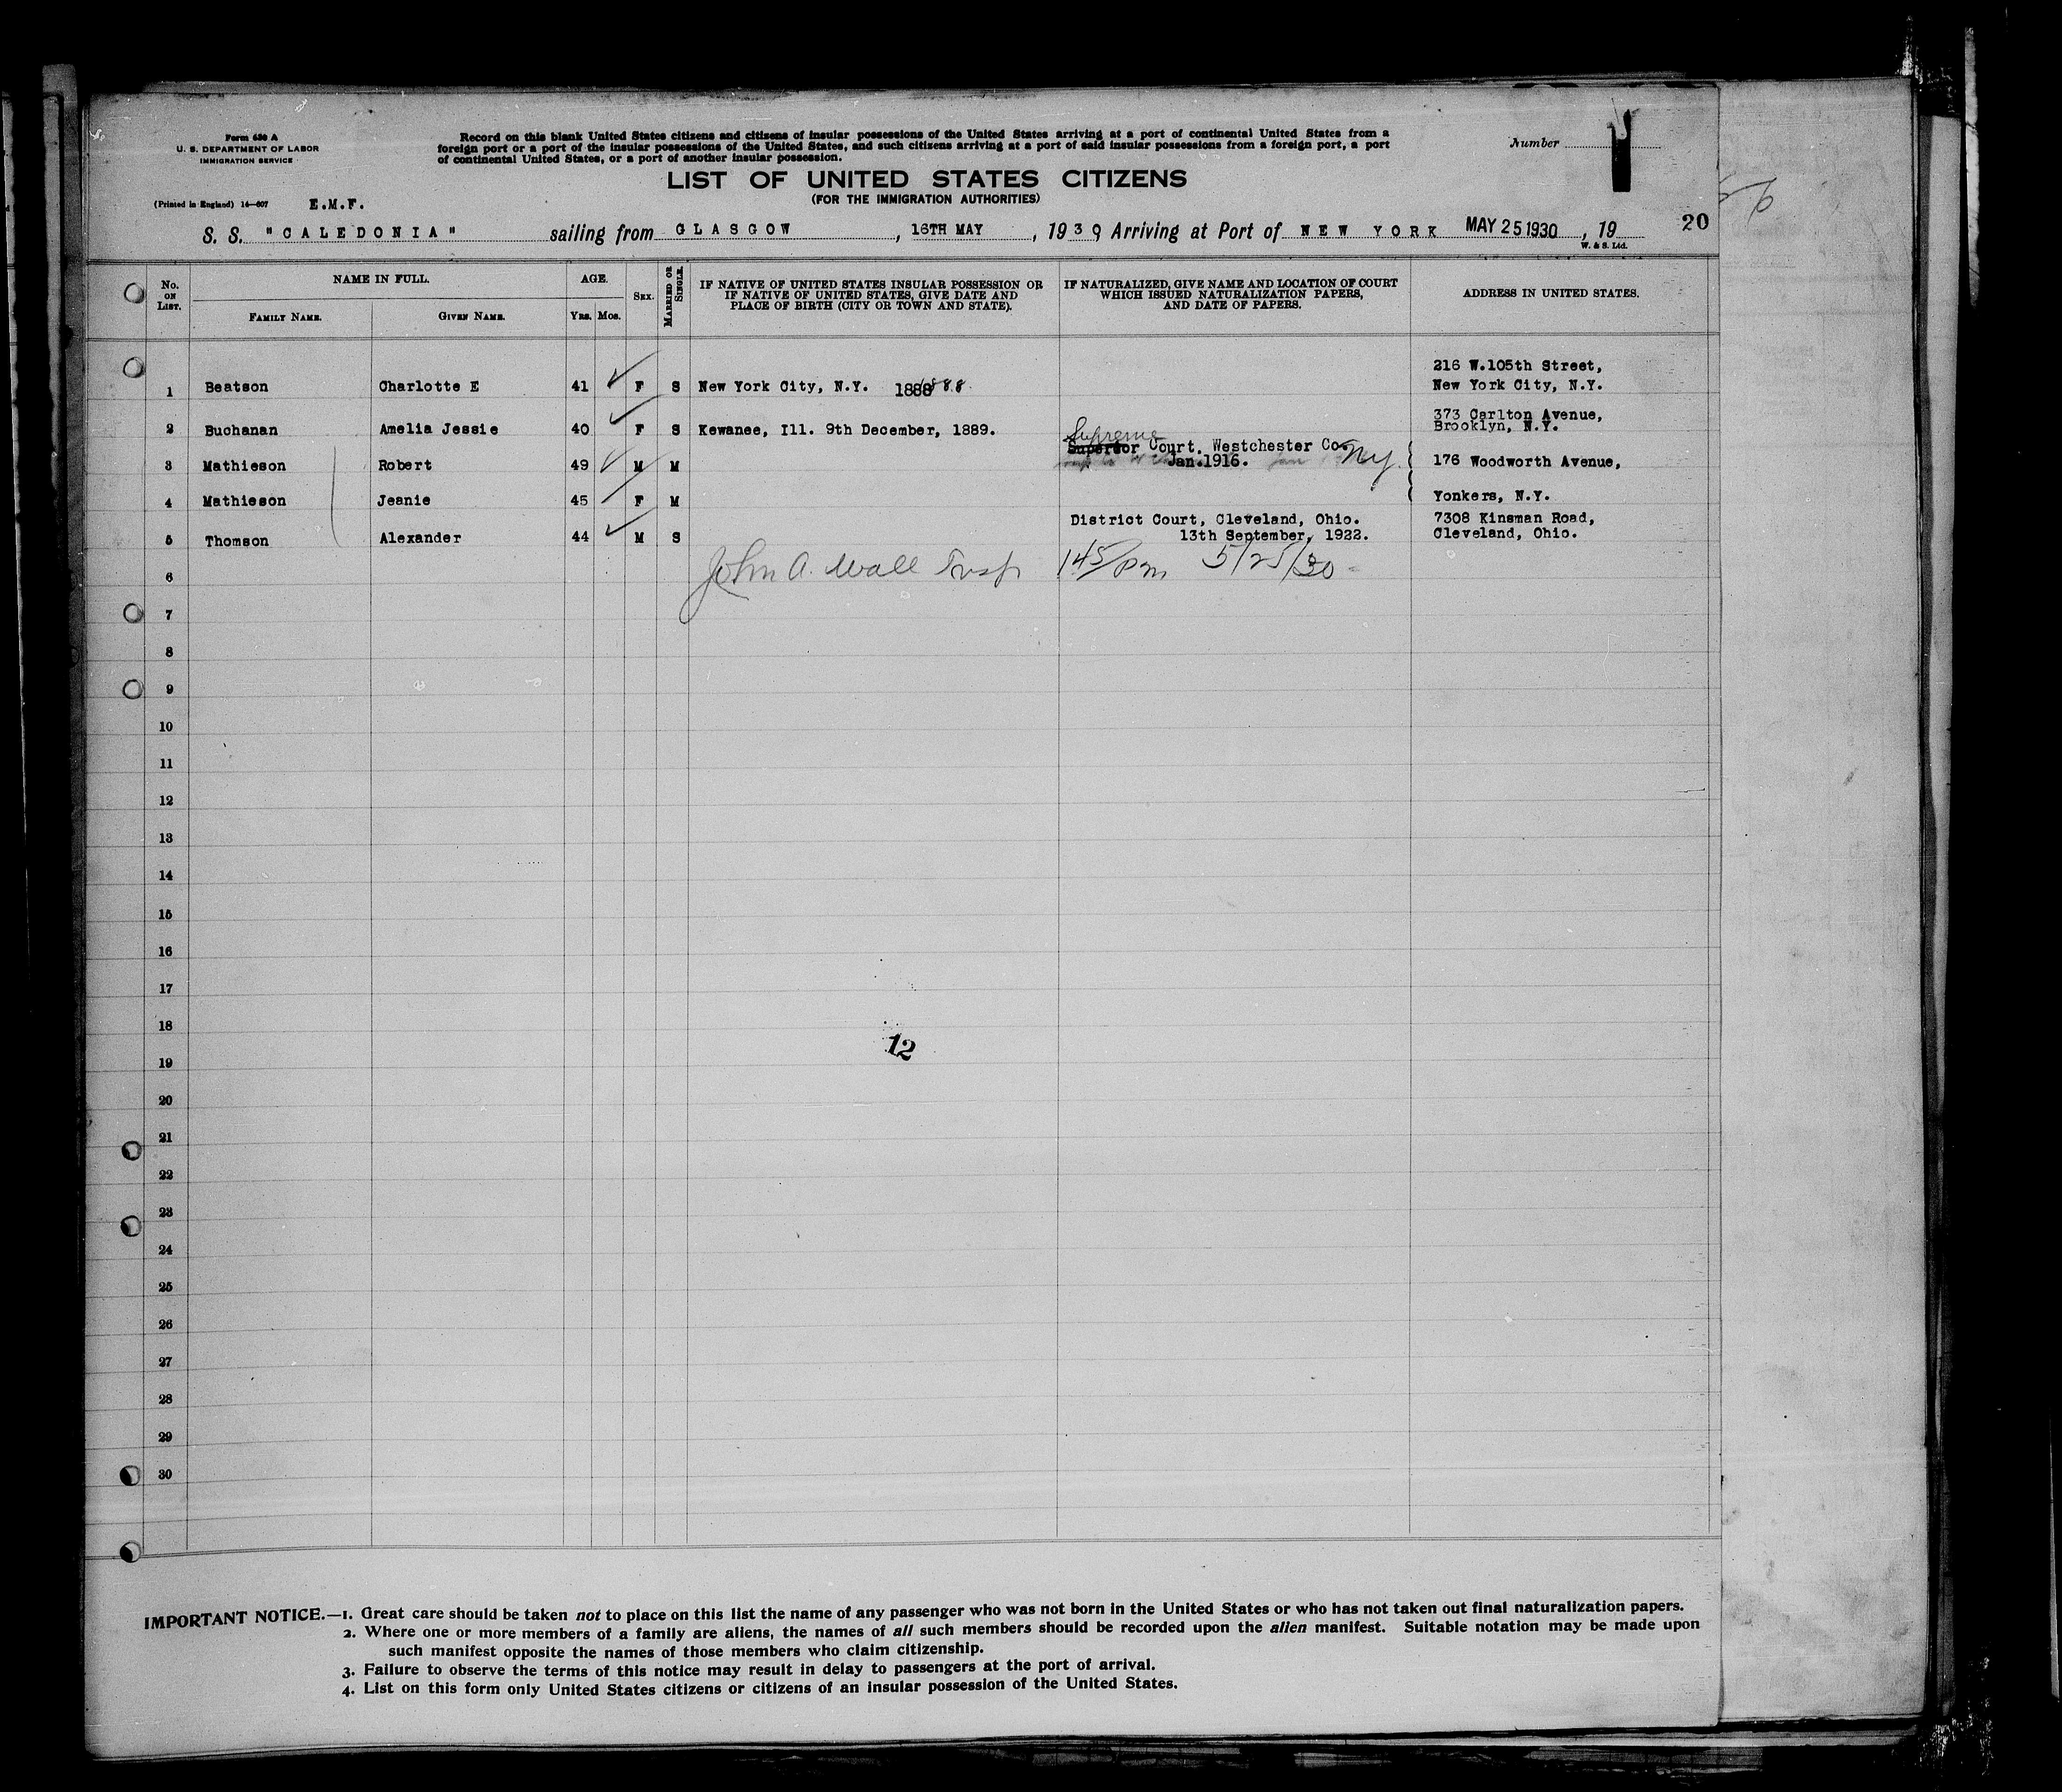 Form 630 A
U. S. DEPARTMENT OF LABOR
IMMIGRATION SERVICE
Record on this blank United States citizens and citizens of insular possessions of the United States arriving at a port of continental United States from a
foreign port or a port of the insular possessions of the United States, and such citizens arriving at a port of said insular possessions from a foreign port, a port
of continental United States, or a port of another insular possession.
Number
LIST OF UNITED STATES CITIZENS
(FOR THE IMMIGRATION AUTHORITIES)
(Printed in England) 14—607 E.M.F.
S. S. "CALEDONIA" sailing from GLASGOW, 16TH MAY, 1930 Arriving at Port of NEW YORK MAY 25 1930, 19 20
W. & S. Ltd.
No. ON LIST. NAME IN FULL. FAMILY NAME. GIVEN NAME. AGE. YRS. MOS. SEX. MARRIED OR SINGLE. IF NATIVE OF UNITED STATES INSULAR POSSESSION OR IF NATIVE OF UNITED STATES, GIVE DATE AND PLACE OF BIRTH (CITY OR TOWN AND STATE). IF NATURALIZED, GIVE NAME AND LOCATION OF COURT WHICH ISSUED NATURALIZATION PAPERS, AND DATE OF PAPERS. ADDRESS IN UNITED STATES.
216 W.105th Street,
1 Beatson Charlotte E 41 F S New York City, N.Y. 1888 1888 New York City, N.Y.
373 Carlton Avenue,
2 Buchanan Amelia Jessie 40 F S Kewanee, Ill. 9th December, 1889. Brooklyn, N.Y.
Supreme
Superior Court. Westchester Co. NY
3 Mathieson Robert 49 M M Jan.1916. 176 Woodworth Avenue,
4 Mathieson Jeanie 45 F M Yonkers, N.Y.
District Court, Cleveland, Ohio. 7308 Kinsman Road,
5 Thomson Alexander 44 M S 13th September, 1922. Cleveland, Ohio.
6 John A. Wall Insp 145/pm 5/25/30
7
8
9
10
11
12
13
14
15
16
17
18
12
19
20
21
22
23
24
25
26
27
28
29
30
IMPORTANT NOTICE.—1. Great care should be taken not to place on this list the name of any passenger who was not born in the United States or who has not taken out final naturalization papers.
2. Where one or more members of a family are aliens, the names of all such members should be recorded upon the alien manifest. Suitable notation may be made upon
such manifest opposite the names of those members who claim citizenship.
3. Failure to observe the terms of this notice may result in delay to passengers at the port of arrival.
4. List on this form only United States citizens or citizens of an insular possession of the United States.